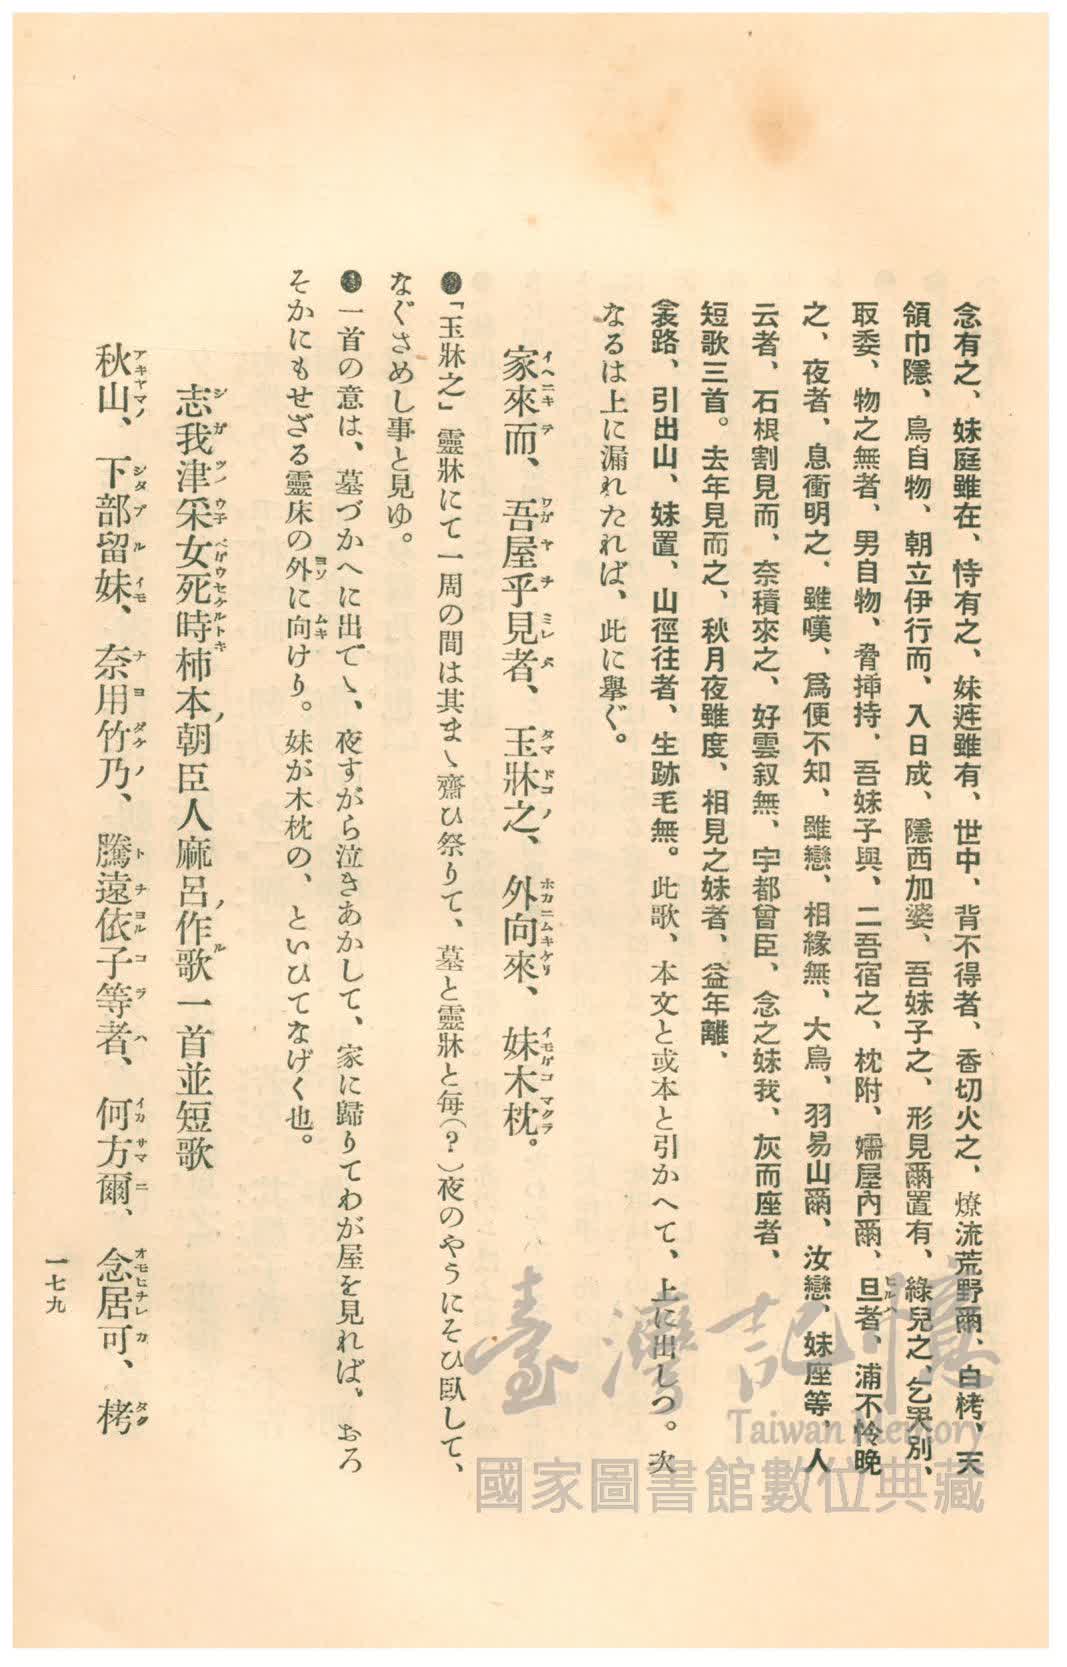 念有之、妹庭雖在、恃有之、妹庭雖有、世中、背不得者、香切火之、燎流荒野爾、白栲、天
領巾隱、鳥自物、朝立伊行而、入日成、隱西加婆、吾妹子之、形見爾置有、綠兒之、乞哭別、
取委、物之無者、男自物、脅挿持、吾妹子與、二吾宿之、枕附、嬬屋內爾、旦者、浦不怜晚
ヒルハ
之、夜者、息衝明之、雖嘆、爲便不知、雖戀、相緣無、大鳥、羽易山爾、汝戀、妹座等、人
云者、石根割見而、奈積來之、好雲叙無、宇都曾臣、念之妹我、灰而座者、
短歌三首。去年見而之、秋月夜雖度、相見之妹者、益年離、
衾路、引出山、妹置、山徑往者、生跡毛無。此歌、本文と或本と引かへて、上に出しつ。次
なるは上に漏れたれば、此に擧ぐ。
家來而、吾屋乎見者、玉牀之、外向來、妹木枕。
イヘニキテ ワガヤヲミレバ タマドコノ ホカニムキケリ イモガコマクラ
●「玉牀之」靈牀にて一周の間は其まゝ齋ひ祭りて、墓と靈牀と每(？)夜のやうにそひ臥して、
なぐさめし事と見ゆ。
●一首の意は、墓づかへに出でゝ、夜すがら泣きあかして、家に歸りてわが屋を見れば、おろ
そかにもせざる靈床の外に向けり。妹が木枕の、といひてなげく也。
ヨソ ムキ
志我津采女死時柿本朝臣人麻呂作歌一首並短歌
シガツノウネベガウセケルトキ ノ ノ ル
秋山、下部留妹、奈用竹乃、騰遠依子等者、何方爾、念居可、栲
アキヤマノ シタブルイモ ナヨダケノ トヲヨルコラハ イカサマニ オモヒヲレカ タク
一七九
臺灣記憶
Taiwan Memory
國家圖書館數位典藏